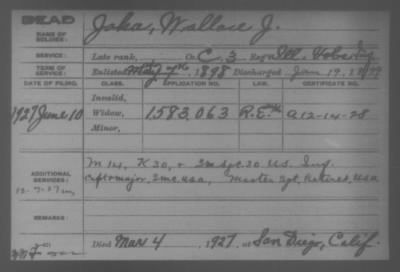 DEAD
NAME OF SOLDIER: Joka, Wallace J.
SERVICE: Late rank, Co. C, 3 Reg't Ill. Vols. Inf.
TERM OF SERVICE: Enlisted May 7th 1898 Discharged Jan 19, 1899
DATE OF FILING. CLASS. APPLICATION NO. LAW. CERTIFICATE NO.
Invalid,
1927 June 10 Widow, 1,583,063 R.E. A 12-14-28
Minor,
M 14, K 30, + 20 U.S. Inf.
ADDITIONAL SERVICES: major, U.S.A., Master Sgt, Retired, U.S.A
12-7-27
REMARKS:
Died Mar 4, 1927, at San Diego, Calif.